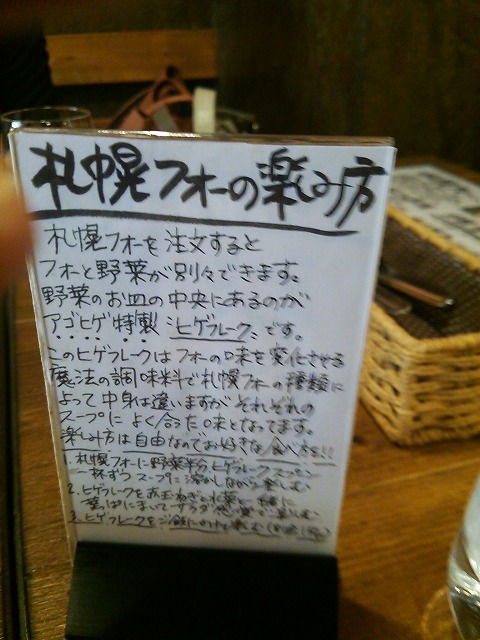 札幌フォーの楽しみ方
札幌フォーを注文すると
フォーと野菜が別々できます。
野菜のお皿の中央にあるのが
アゴヒゲ特製ヒゲフレークです。
このヒゲフレークはフォーの味を変化させる
魔法の調味料で札幌フォーの種類に
よって中身は違いますが それぞれの
スープに よく合った味となってます。
楽しみ方は自由なのでお好きな食べ方を!!
1. 札幌フォーに野菜半分 ヒゲフレークスプーン
一杯ずつ スープに溶かしながら楽しむ
2. ヒゲフレークをお玉ねぎと水菜と一緒に
葉っぱにまいてサラダ感覚で楽しむ
3. ヒゲフレークをご飯にかけて楽しむ